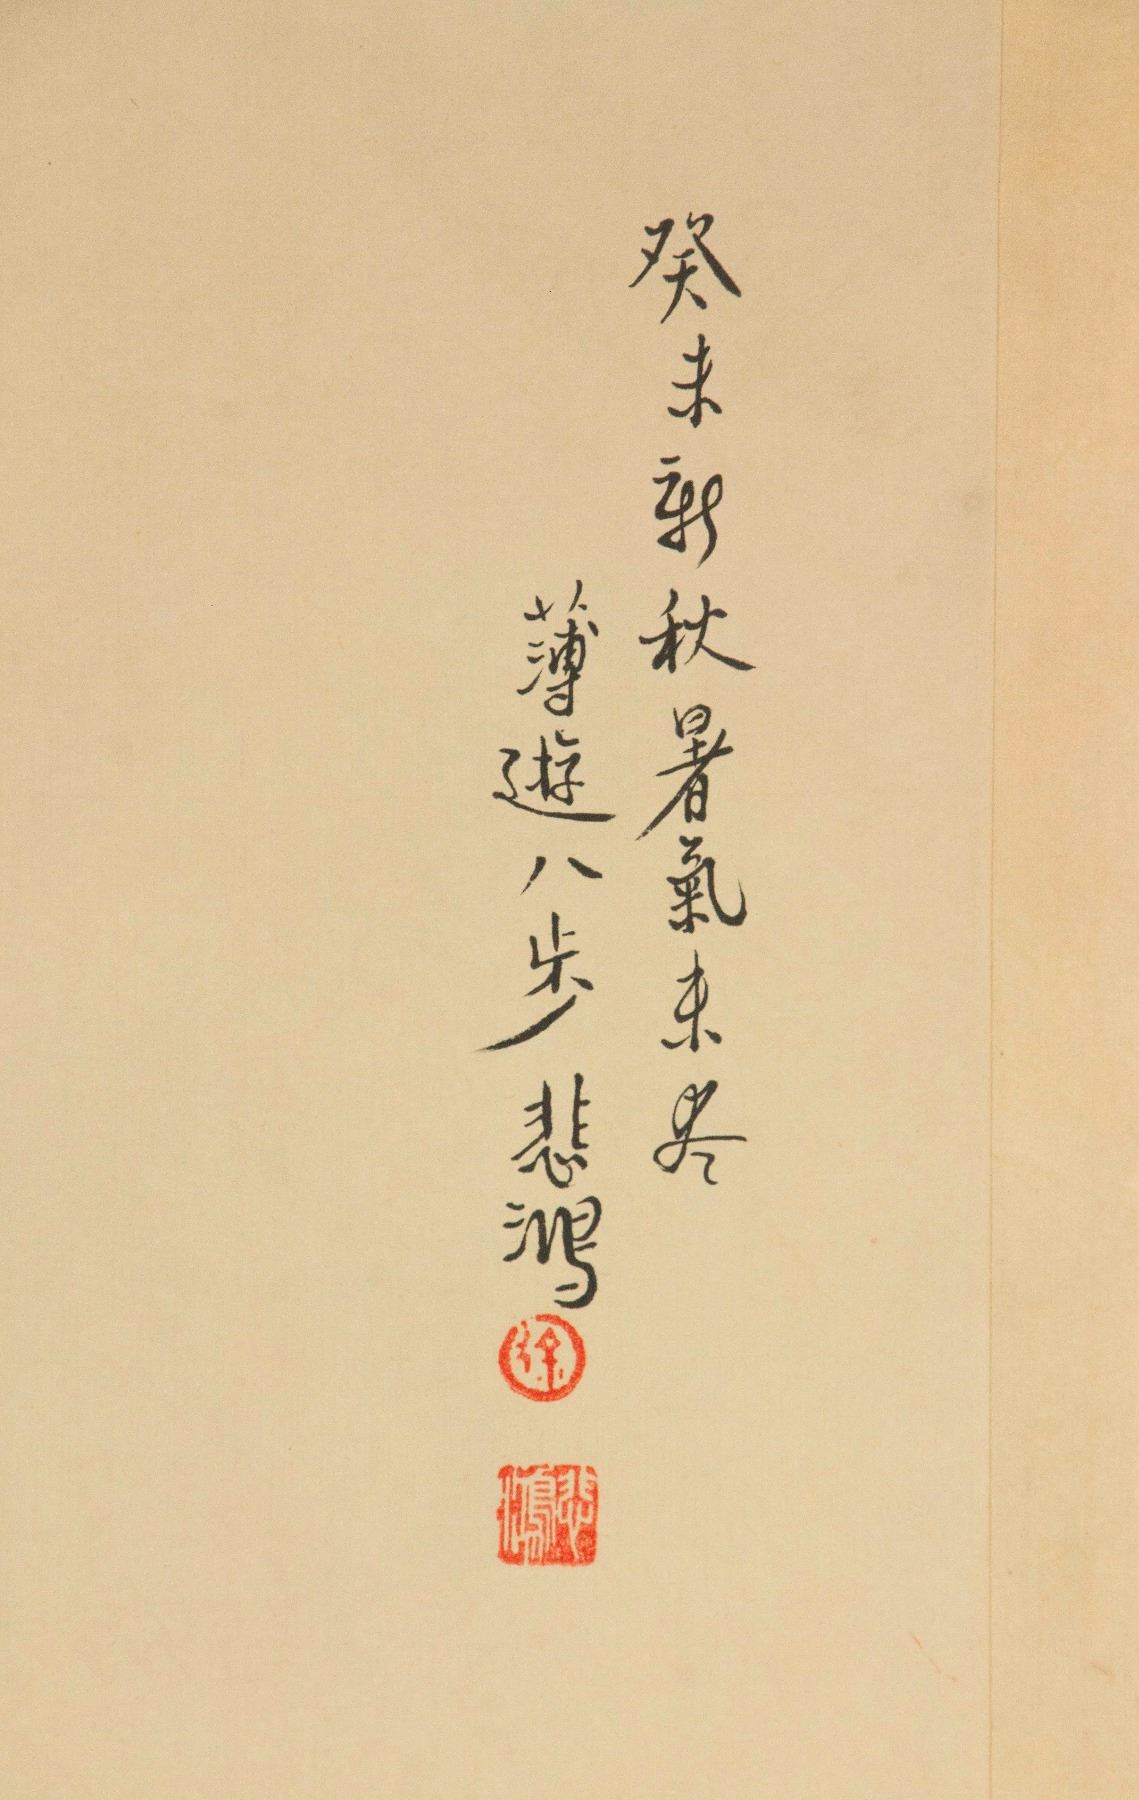 癸未新秋暑氣未盡
薄遊八步 悲鴻
徐
悲鴻